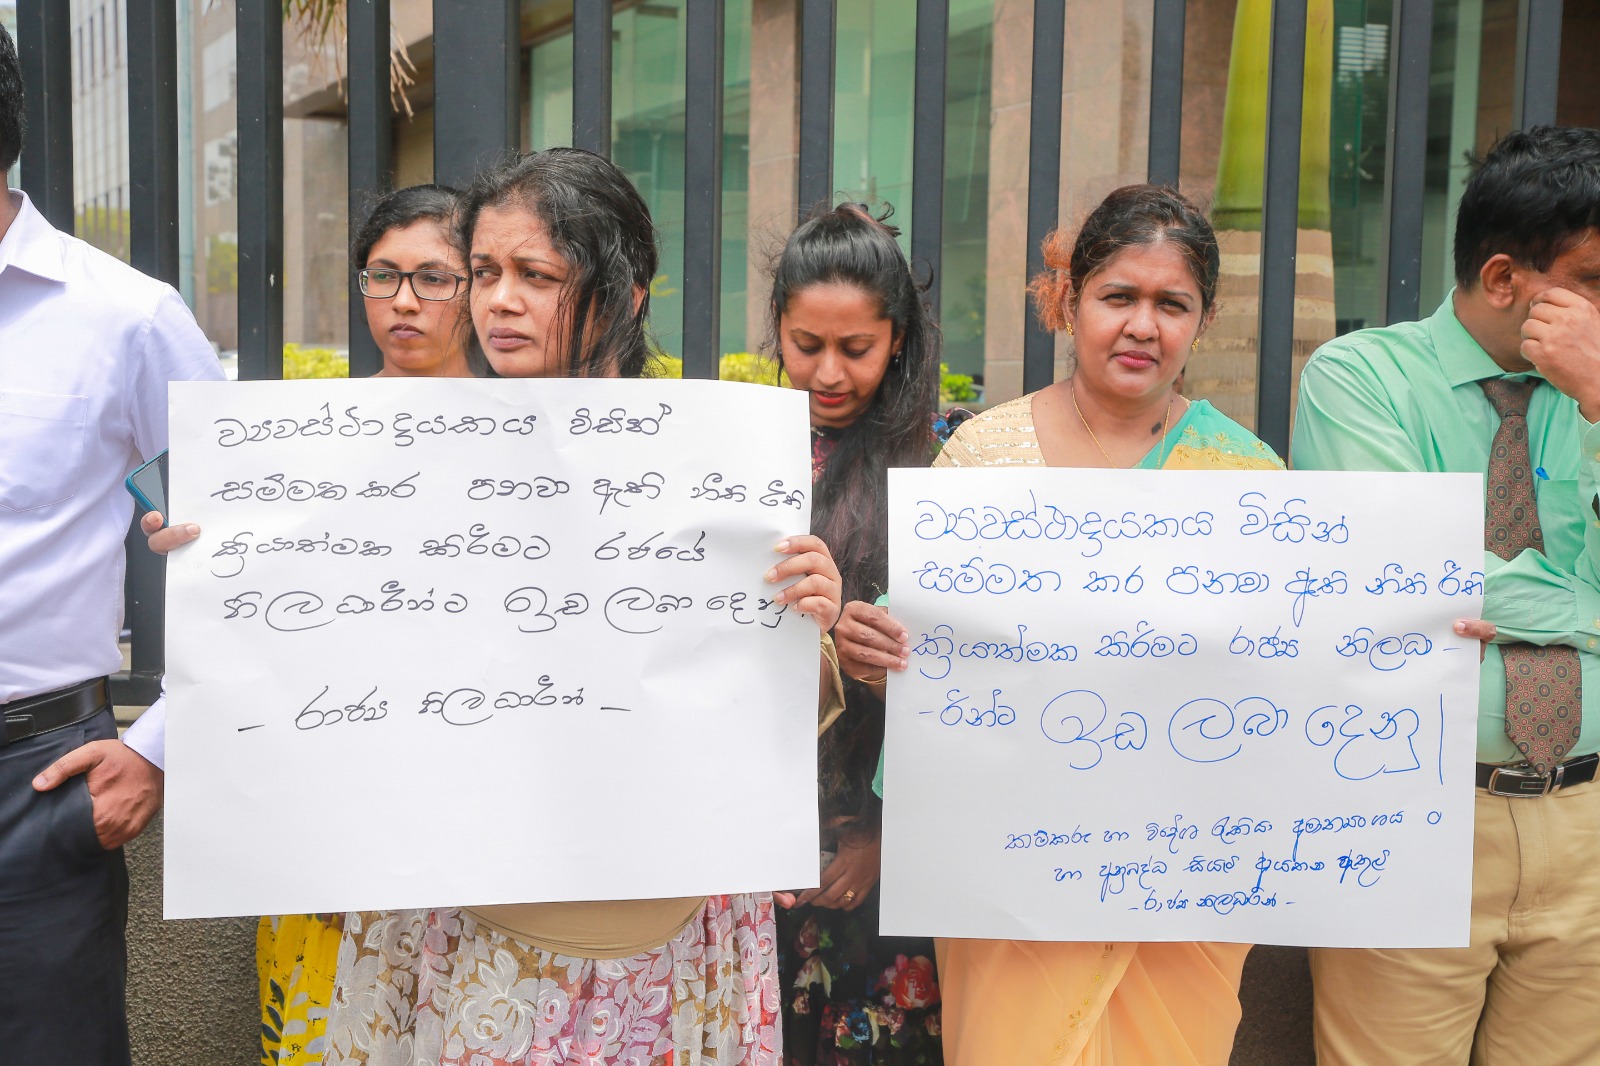 ව්‍යවස්ථාදයකය විසින්
සම්මත කර පනවා ඇති නීති රීති
ක්‍රියාත්මක කිරීමට රජයේ
නිලධාරීන්ට ඉඩ ලබා දෙනු!
– රාජ්‍ය නිලධාරීන් –
ව්‍යවස්ථාදයකය විසින්
සම්මත කර පනවා ඇති නීති රීති
ක්‍රියාත්මක කිරීමට රාජ්‍ය නිලධා –
– රීන්ට ඉඩ ලබා දෙනු!
කම්කරු හා විදේශ රැකියා අමාත්‍යංශය
හා අනුබද්ධ සියලු ආයතන අතුල්
– රාජ්‍ය නිලධාරීන් –